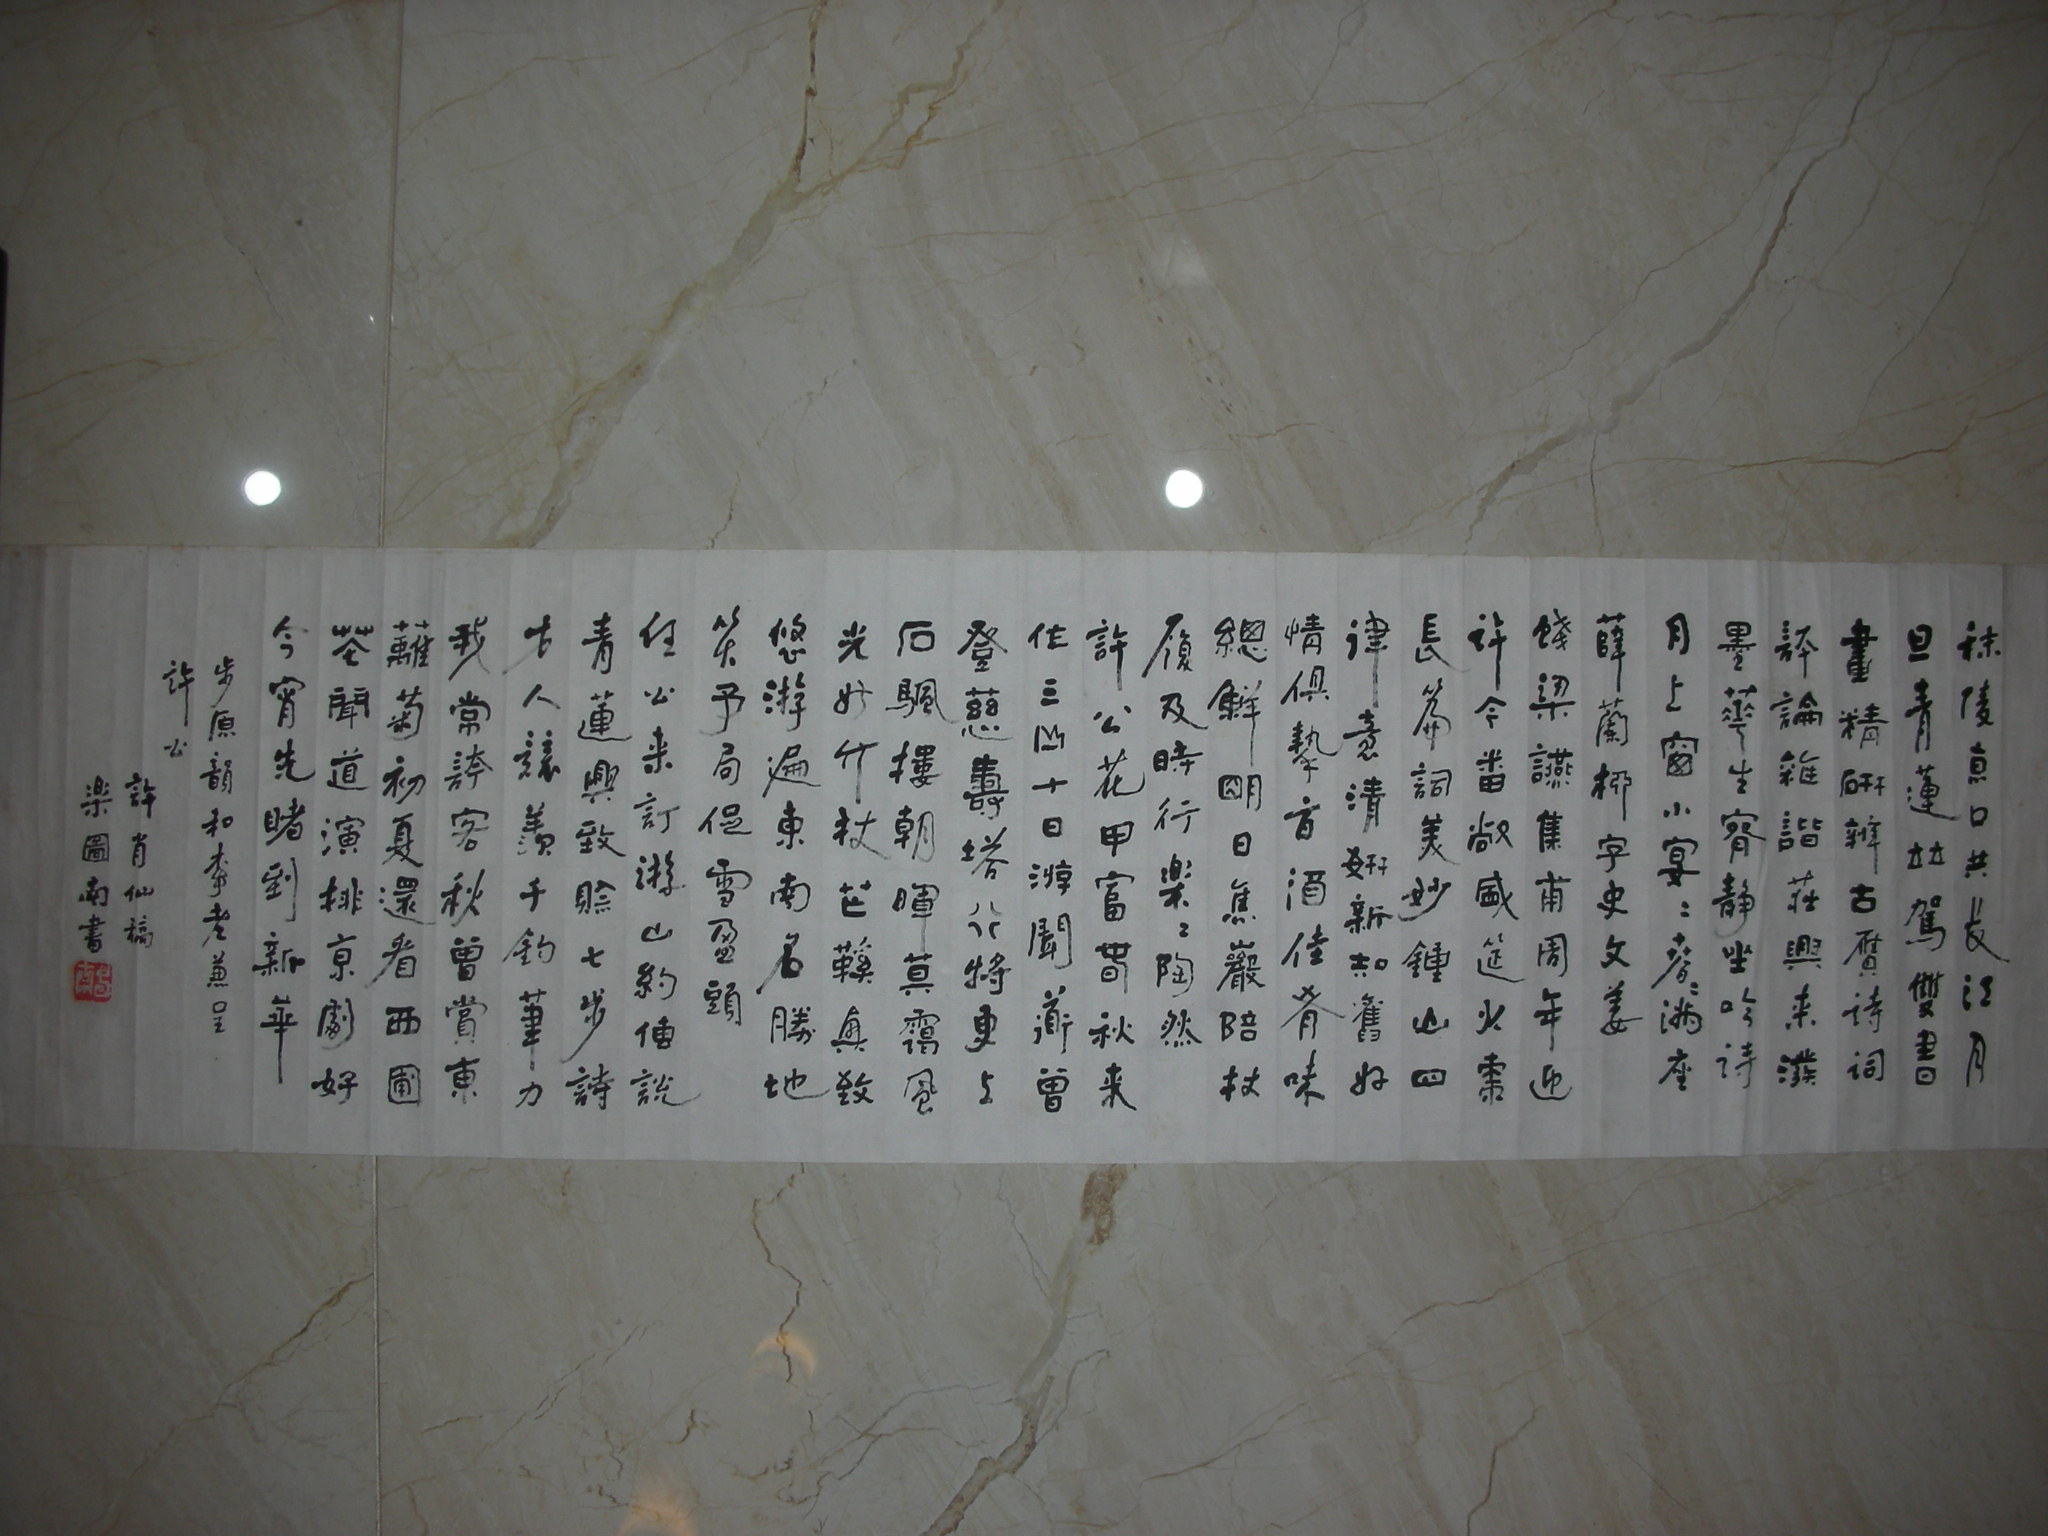 秣陵京口共長江月
旦青蓮竝駕雙書
畫精研辨古賢詩詞
評論雜諧莊興来潑
墨華生寶靜坐吟詩
月上窗小宴〻花〻滿座
薛蘭柳字史文姜
餞梁讌集甫周年迎
許今番敞盛筵火棗
長篇詞美妙鍾山四
律意清妍新知舊好
情俱摯旨酒佳肴味
總鮮明日焦巖陪杖
履及時行樂〻陶然
許公花甲富春秋来
作三山十日游聞道曾
登慈壽塔今將更上
石颿樓朝暉莫靄風
光好竹杖芒鞵興致
悠游遍東南名勝地
笑予局促雪盈頭
任公来訂游山約便說
青蓮興致賒七步詩
才人競羨千鈞筆力
我常誇客秋曾賞東
蘺菊初夏還看西圃
花聞道演排京劇好
今宵先睹到新華
步原韻和李老兼呈
許公
許肖仙稿
樂圖南書